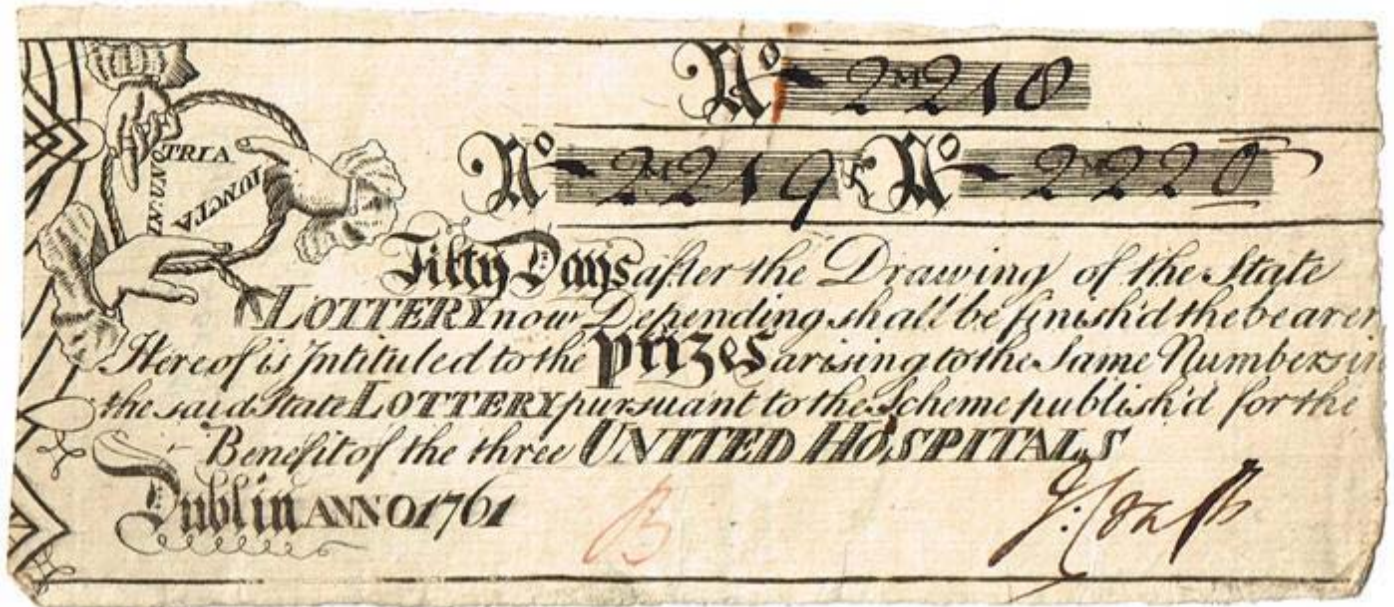 No 2M218
No 2M219 & No 2M220
TRIA
IUNCTA
IN UNO
Fifty Days after the Drawing of the State
LOTTERY now Depending shall be finish'd the bearer
Hereof is Intituled to the Prizes arising to the Same Numbers in
the said State LOTTERY pursuant to the Scheme publish'd for the
Benefit of the three UNITED HOSPITALS
Dublin ANNO 1761
B